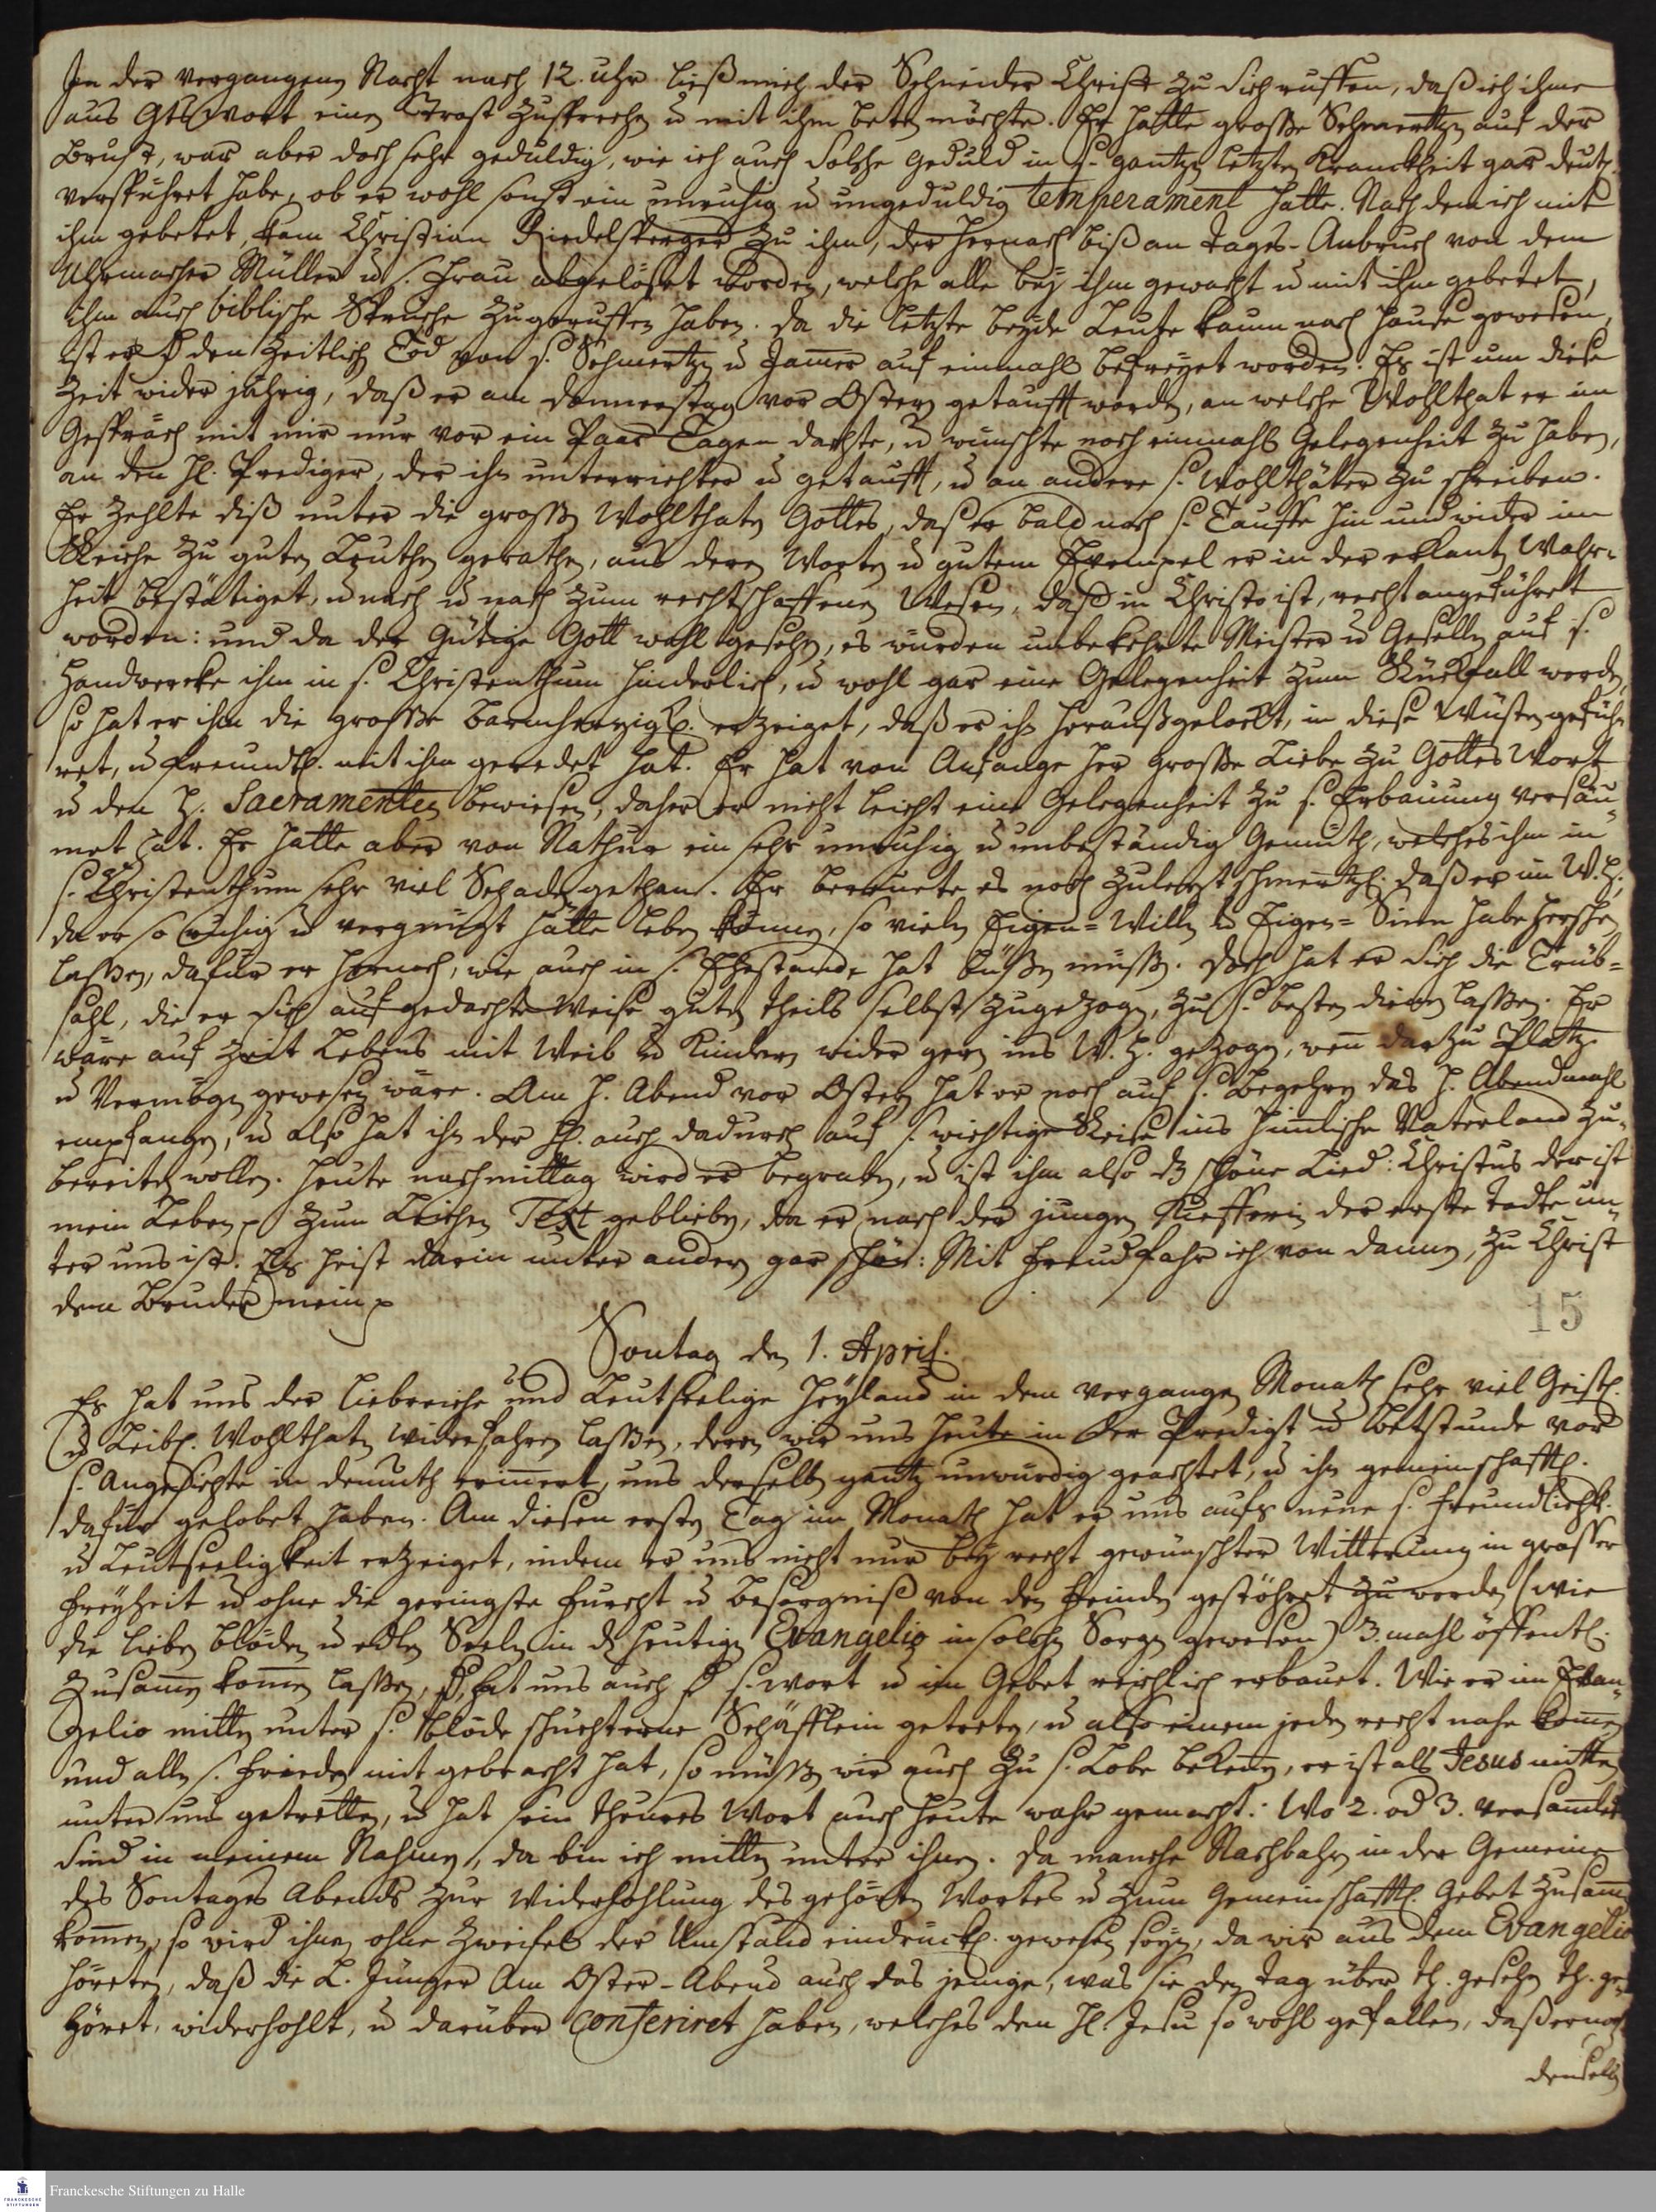 In der vergangenen Nacht nach 12. uhr ließ mich der Schneider Christ zu sich ruffen, daß ich ihme
aus Gtes Wort einen Trost zusprechen u mit ihm beten möchte. Er hatte große Schmertzen auf der
Brust, war aber doch sehr geduldig, wie ich auch solche Geduld in s. gantzen letzten Kranckheit gar deutl.
verspühret habe, ob er wohl sonst ein unruhig u ungeduldig temperament hatte. Nach dem ich mit
ihm gebetet, kam Christian Riedelsperger zu ihm, der hernach biß an Tages-Anbruch von dem
Uhrmacher Müller u s. Frau abgelöset worden, welche alle bey ihm gewacht u mit ihm gebetet,
ihm auch biblische Sprüche zugeruffen haben. Da die letzte beyde Leute kaum nach Hause gewesen,
ist er d den zeitlich Tod von s. Schmertzen u Jamer auf einmahl befreyet worden. Es ist um diese
Zeit wider jährig, daß er am Donnerstag vor Ostern getaufft worden, an welche Wohlthat er im
Gespräch mit mir nur vor ein Paar Tagen dachte, u wünschte noch einmahl Gelegenheit zu haben,
an den H. Prediger, der ihn unterrichtet u getaufft, u an andere s. Wohlthäter zu schreiben.
Er zehlte diß unter die großen Wohlthaten Gottes, daß er bald nach s. Tauffe hin und wider im
Reiche zu guten Leuthen gerathen, aus deren Worten u gutem Exempel er in der erkanten Wahr-
heit bestätiget, u nach u nach zum rechtschaffenen Wesen, daß in Christo ist, recht angeführet
worden: und da der Gütige Gott wohl gesehen, es würden unbekehrte Meister u Gesellen auf s.
Handwercke ihm in s. Christenthum hinderlich, u wohl gar eine Gelegenheit zum Rückfall werden,
so hat er ihm die große Barmherzigk. erzeiget, daß er ihn heraußgelockt, in diese Wüsten gefüh-
ret, u freundl. mit ihm geredet hat. Er hat von Anfange her große Liebe zu Gottes Wort
u den H. Sacramenten bewiesen, daher er nicht leicht eine Gelegenheit zu s. Erbauung versäu-
met hat. Er hatte aber von Nathur ein sehr unruhig u unbeständig Gemüth, welches ihm in
s. Christenthum sehr viel Schaden gethan. Er bereuete es noch zuletzt schmertzl. daß er im W. H.,
da er so ruhig u vergnügt hätte leben können, so vielen Eigen=Willen u Eigen=Sinn habe herschen
laßen, dafür er hernach, wie auch in s. Ehestande hat büßen müßen. Doch hat er sich die Trüb=
sahl, die er sich auf gedachte Weise guten theils selbst zugezogen, zu s. besten dienen laßen. Er
wäre auf Zeit Lebens mit Weib u Kindern wider gern ins W. H. gezogen, wen̄ dazu Platz
u Vermögen gewesen wäre. Am H. Abend vor Ostern hat er noch auf s. Begehren das H. Abendmahl
empfangen, u also hat ihn der H. auch dadurch auf s. wichtige Reise ins himlische Vaterland zu-
bereiten wollen. Heute nachmittag wird er begraben, u ist ihm also dz schöne Lied: Christus der ist
mein Leben p zum Leichen Text geblieben, da er nach der jungen Kiefferin der erste todte un-
ter uns ist. Es heist darin unter andern gar schön: Mit Freud fahr ich von dannen, zu Christ
dem Bruder mein p
15
Sontag den 1. April.
Es hat uns der liebreiche und Leutseelige Heyland in dem vergangen Monath sehr viel Geistl.
u Leibl. Wohlthaten widerfahren laßen, deren wir uns heute in der Predigt u Betstunde vor
s. Angesichte in demuth erin̄ert, uns derselben gantz unwürdig geachtet, u ihn gemeinschafftl.
dafür gelobet haben. Am diesen ersten Tag im Monath hat er uns aufs neue s. Freundlichk.
u Leutseeligkeit erzeiget, indem er uns nicht nur bey recht gewünschter Witterung in großer
Freyheit u ohne die geringste Furcht u Besorgniß von den Feinden gestöhret zu werden (wie
die lieben blöden u edlen Seelen in d heutigen Evangelio in solchen Sorgen gewesen) 3. mahl öffentl.
zusam̄en kom̄en laßen, sd. hat uns auch d s. wort u im Gebet reichlich erbauet. Wie er im Evan-
gelio mitten unter s. blöde schüchterne Schäfflein getreten, u also einem jeden recht nahe kom̄en
und allen s. Frieden mit gebracht hat, so müßen wir auch zu s. Lobe bekenen, er ist als Jesus mitten
unter uns getretten, u hat sein theures Wort auch heute wahr gemacht: Wo 2. od 3. versam̄let
sind in meinem Nahmen, da bin ich mitten unter ihnen. Da manche Nachbahrn in der Gemeine
des Sontages Abends zur Widerhohlung des gehörten Wortes u zum Gemeinschafftl. Gebet zusam̄en
kom̄en, so wird ihnen ohne Zweifel der Umstand eindrückl. gewesen seyn, da wir aus dem Evangelio
höreten, daß die L. Jünger Am Oster-Abend auch das jenige, was sie den tag über th. gesehen th. ge-
höret, widerhohlt, u darüber conferiret haben, welches den H. Jesu so wohl gefallen, daß er noch
denselben
Franckesche Stiftungen zu Halle